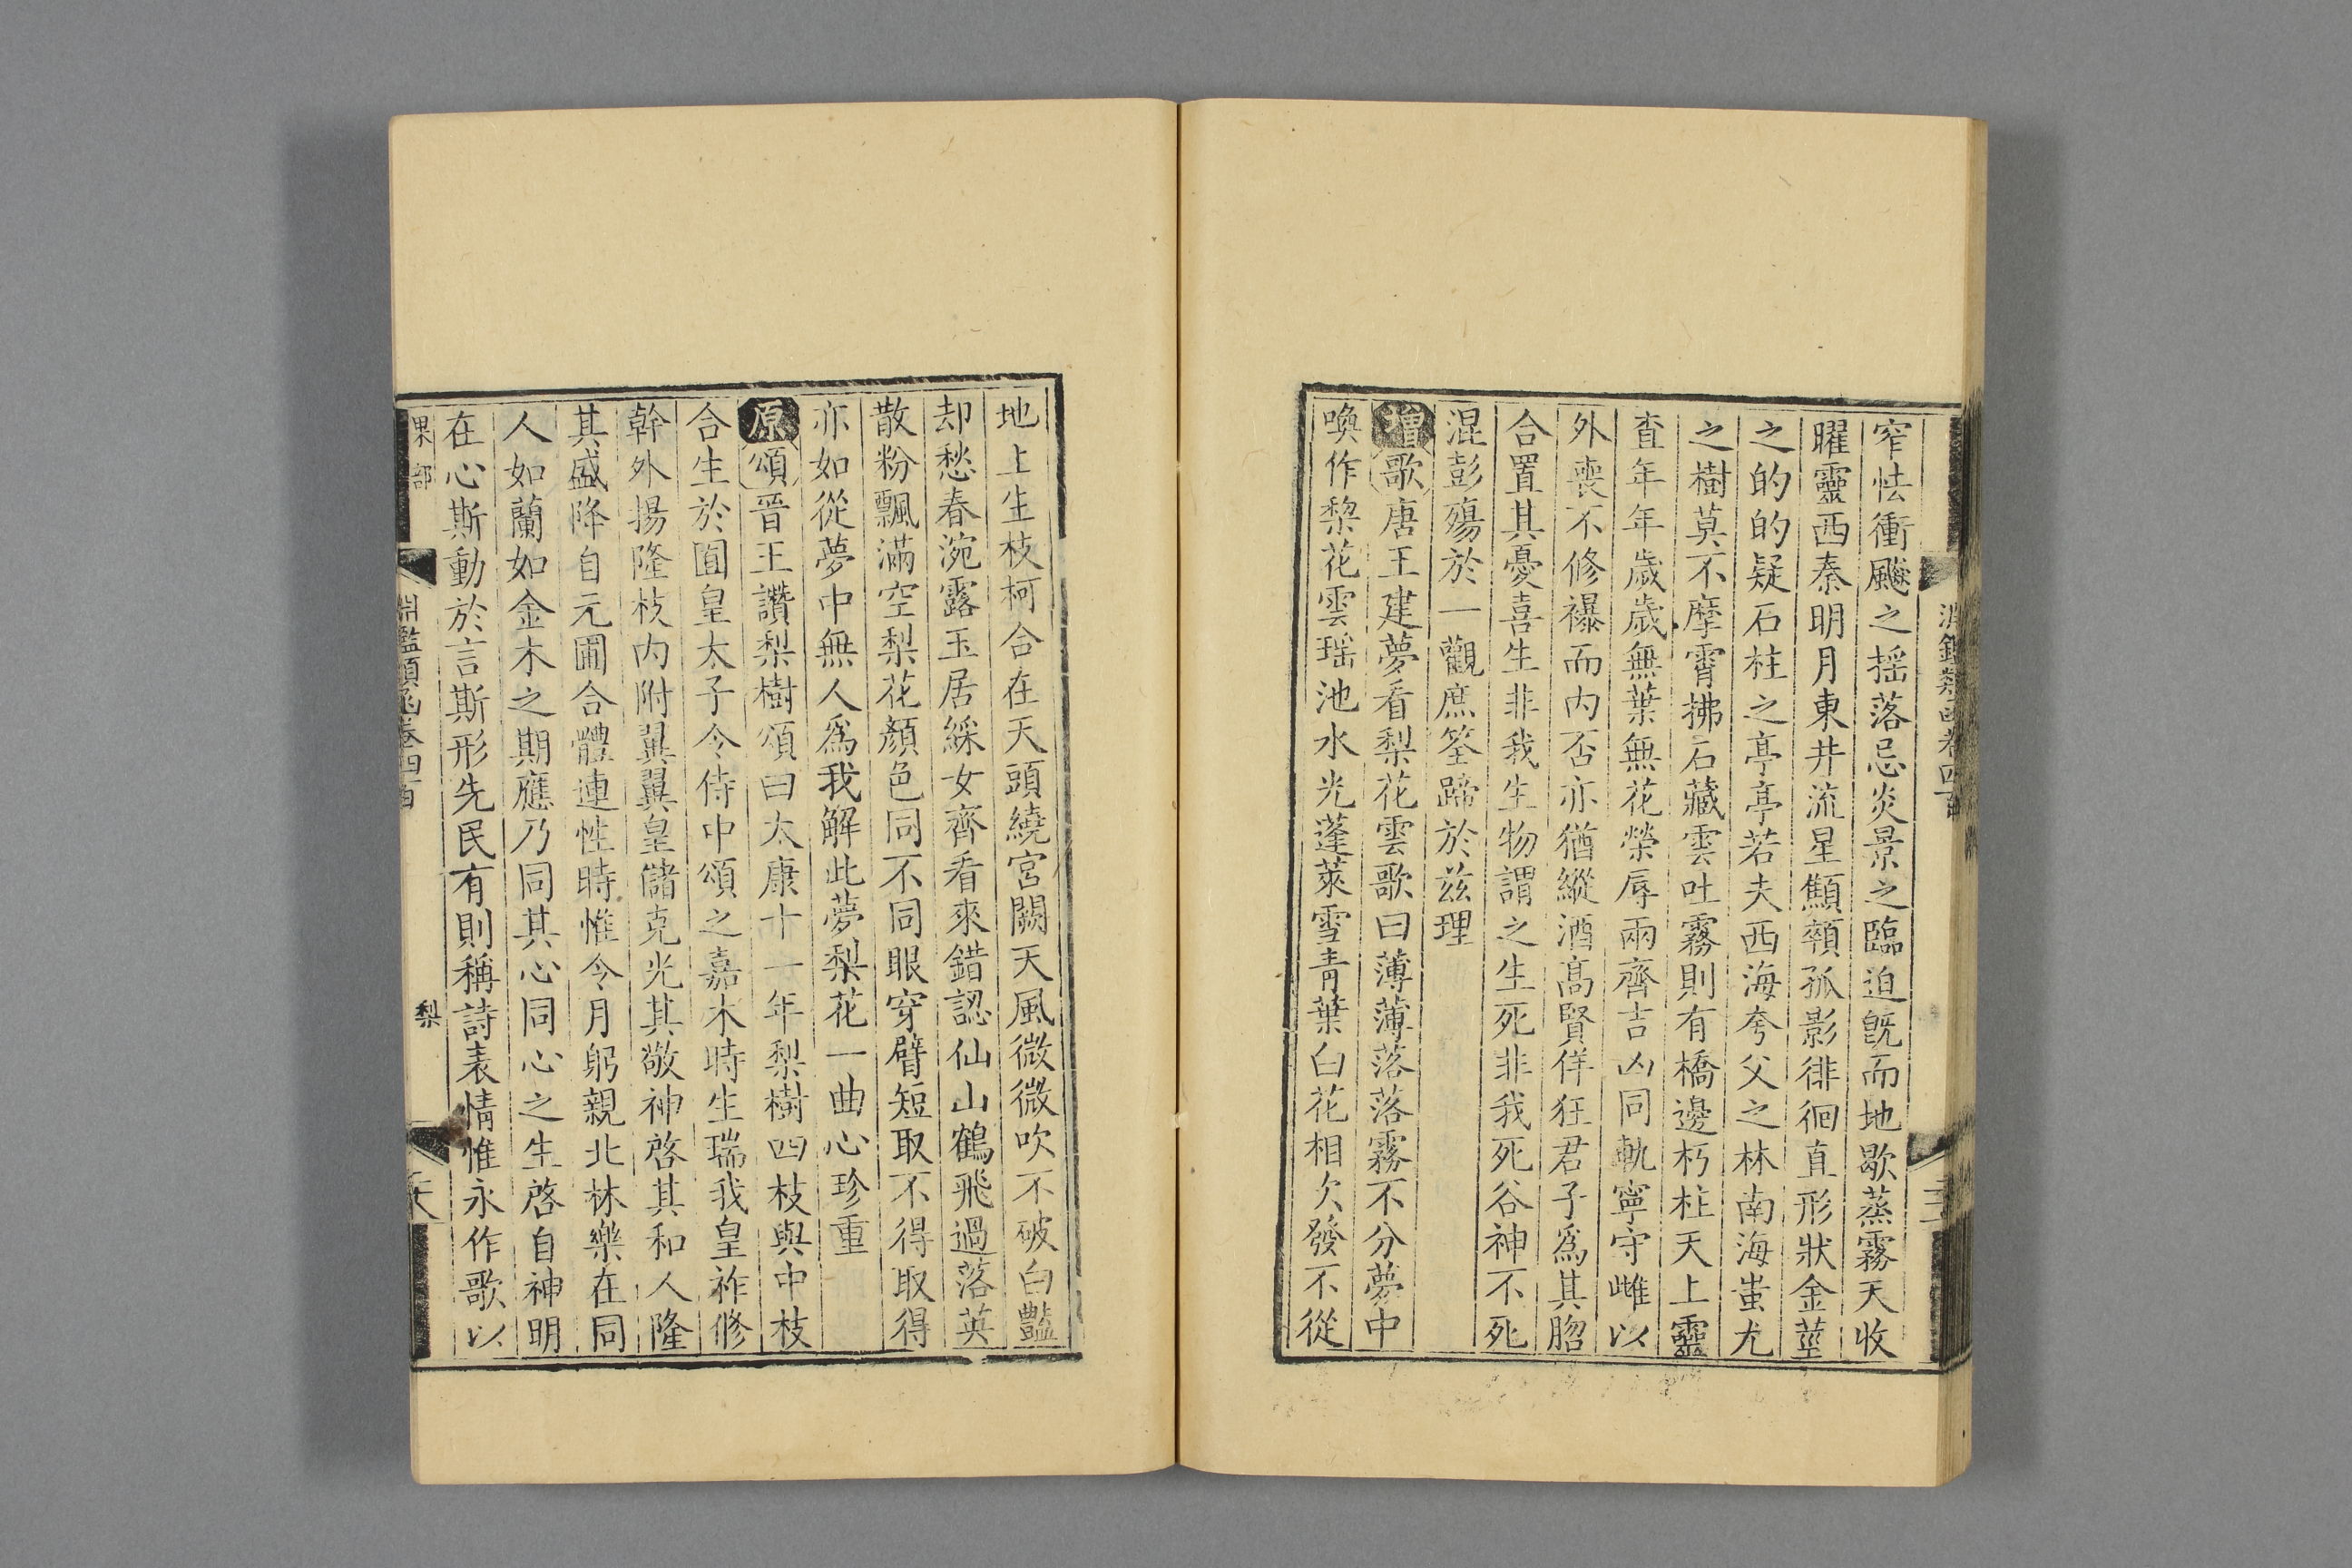 窄怯衝飈之摇落忌炎景之臨迫旣而地歇蒸霧天收
曜靈西秦明月東井流星顦顇孤影徘徊直形狀金莖
之的的疑石柱之亭亭若夫西海夸父之林南海蚩尤
之樹莫不摩霄拂石藏雲吐霧則有橋邊朽柱天上靈
査年年歲歲無葉無花榮辱兩齊吉凶同軌寧守雌以
外喪不修襮而内否亦猶縱酒高賢佯狂君子爲其脗
合置其憂喜生非我生物謂之生死非我死谷神不死
混彭殤於一觀庶筌蹄於兹理
增歌唐王建夢看梨花雲歌曰薄薄落落霧不分夢中
喚作梨花雲瑶池水光蓬萊雪青葉白花相次發不從
地上生枝柯合在天頭繞宮闕天風微微吹不破白豔
却愁春涴露玉居綵女齊看來錯認仙山鶴飛過落英
散粉飄滿空梨花顏色同不同眼穿臂短取不得取得
亦如從夢中無人爲我解此夢梨花一曲心珍重
原頌晉王讚梨樹頌曰太康十一年梨樹四枝與中枝
合生於園皇太子令侍中頌之嘉木時生瑞我皇祚修
幹外揚隆枝内附翼翼皇儲克光其敬神啓其和人隆
其盛降自元圃合體連性時惟令月躬親北林樂在同
人如蘭如金木之期應乃同其心同心之生啓自神明
在心斯動於言斯形先民有則稱詩表情惟永作歌以
果部
淵鑑類函卷四百
梨